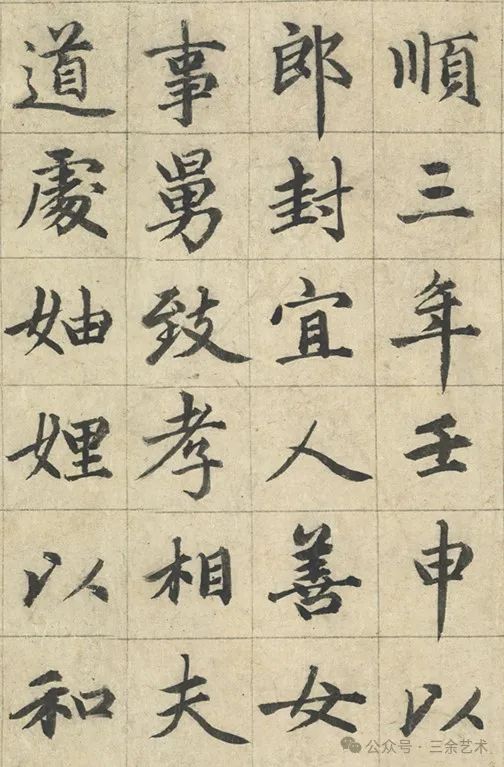 順三年壬申以
郎封宜人善女
事舅致孝相夫
道處妯娌以和
公众号 · 三余艺术